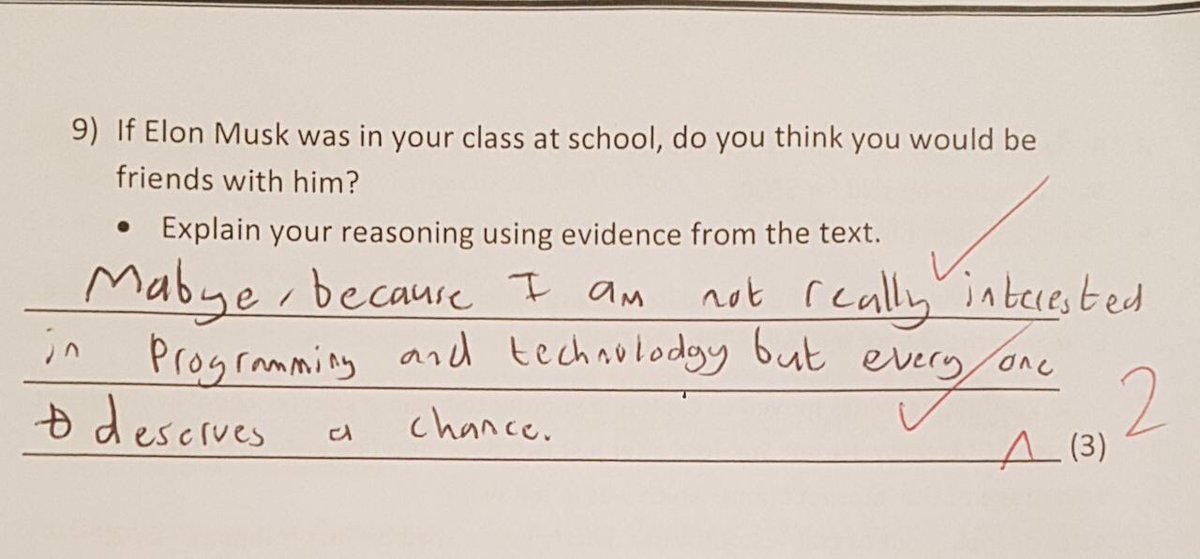 9) If Elon Musk was in your class at school, do you think you would be
friends with him?
• Explain your reasoning using evidence from the text.
Mabye, because I am not really interested
in Programming and technolodgy but every one
deserves a chance.
(3) 2